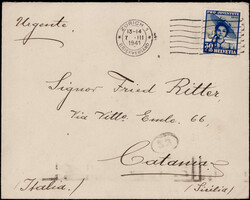 Urgente
ZÜRICH
13-14
7 III
1941
BRIEFVERSAND
PRO JUVENTUTE
HELVETIA
Signor Fried Ritter
Via Vitto. Emle. 66
Catania
(Italia.) (Sicilia)